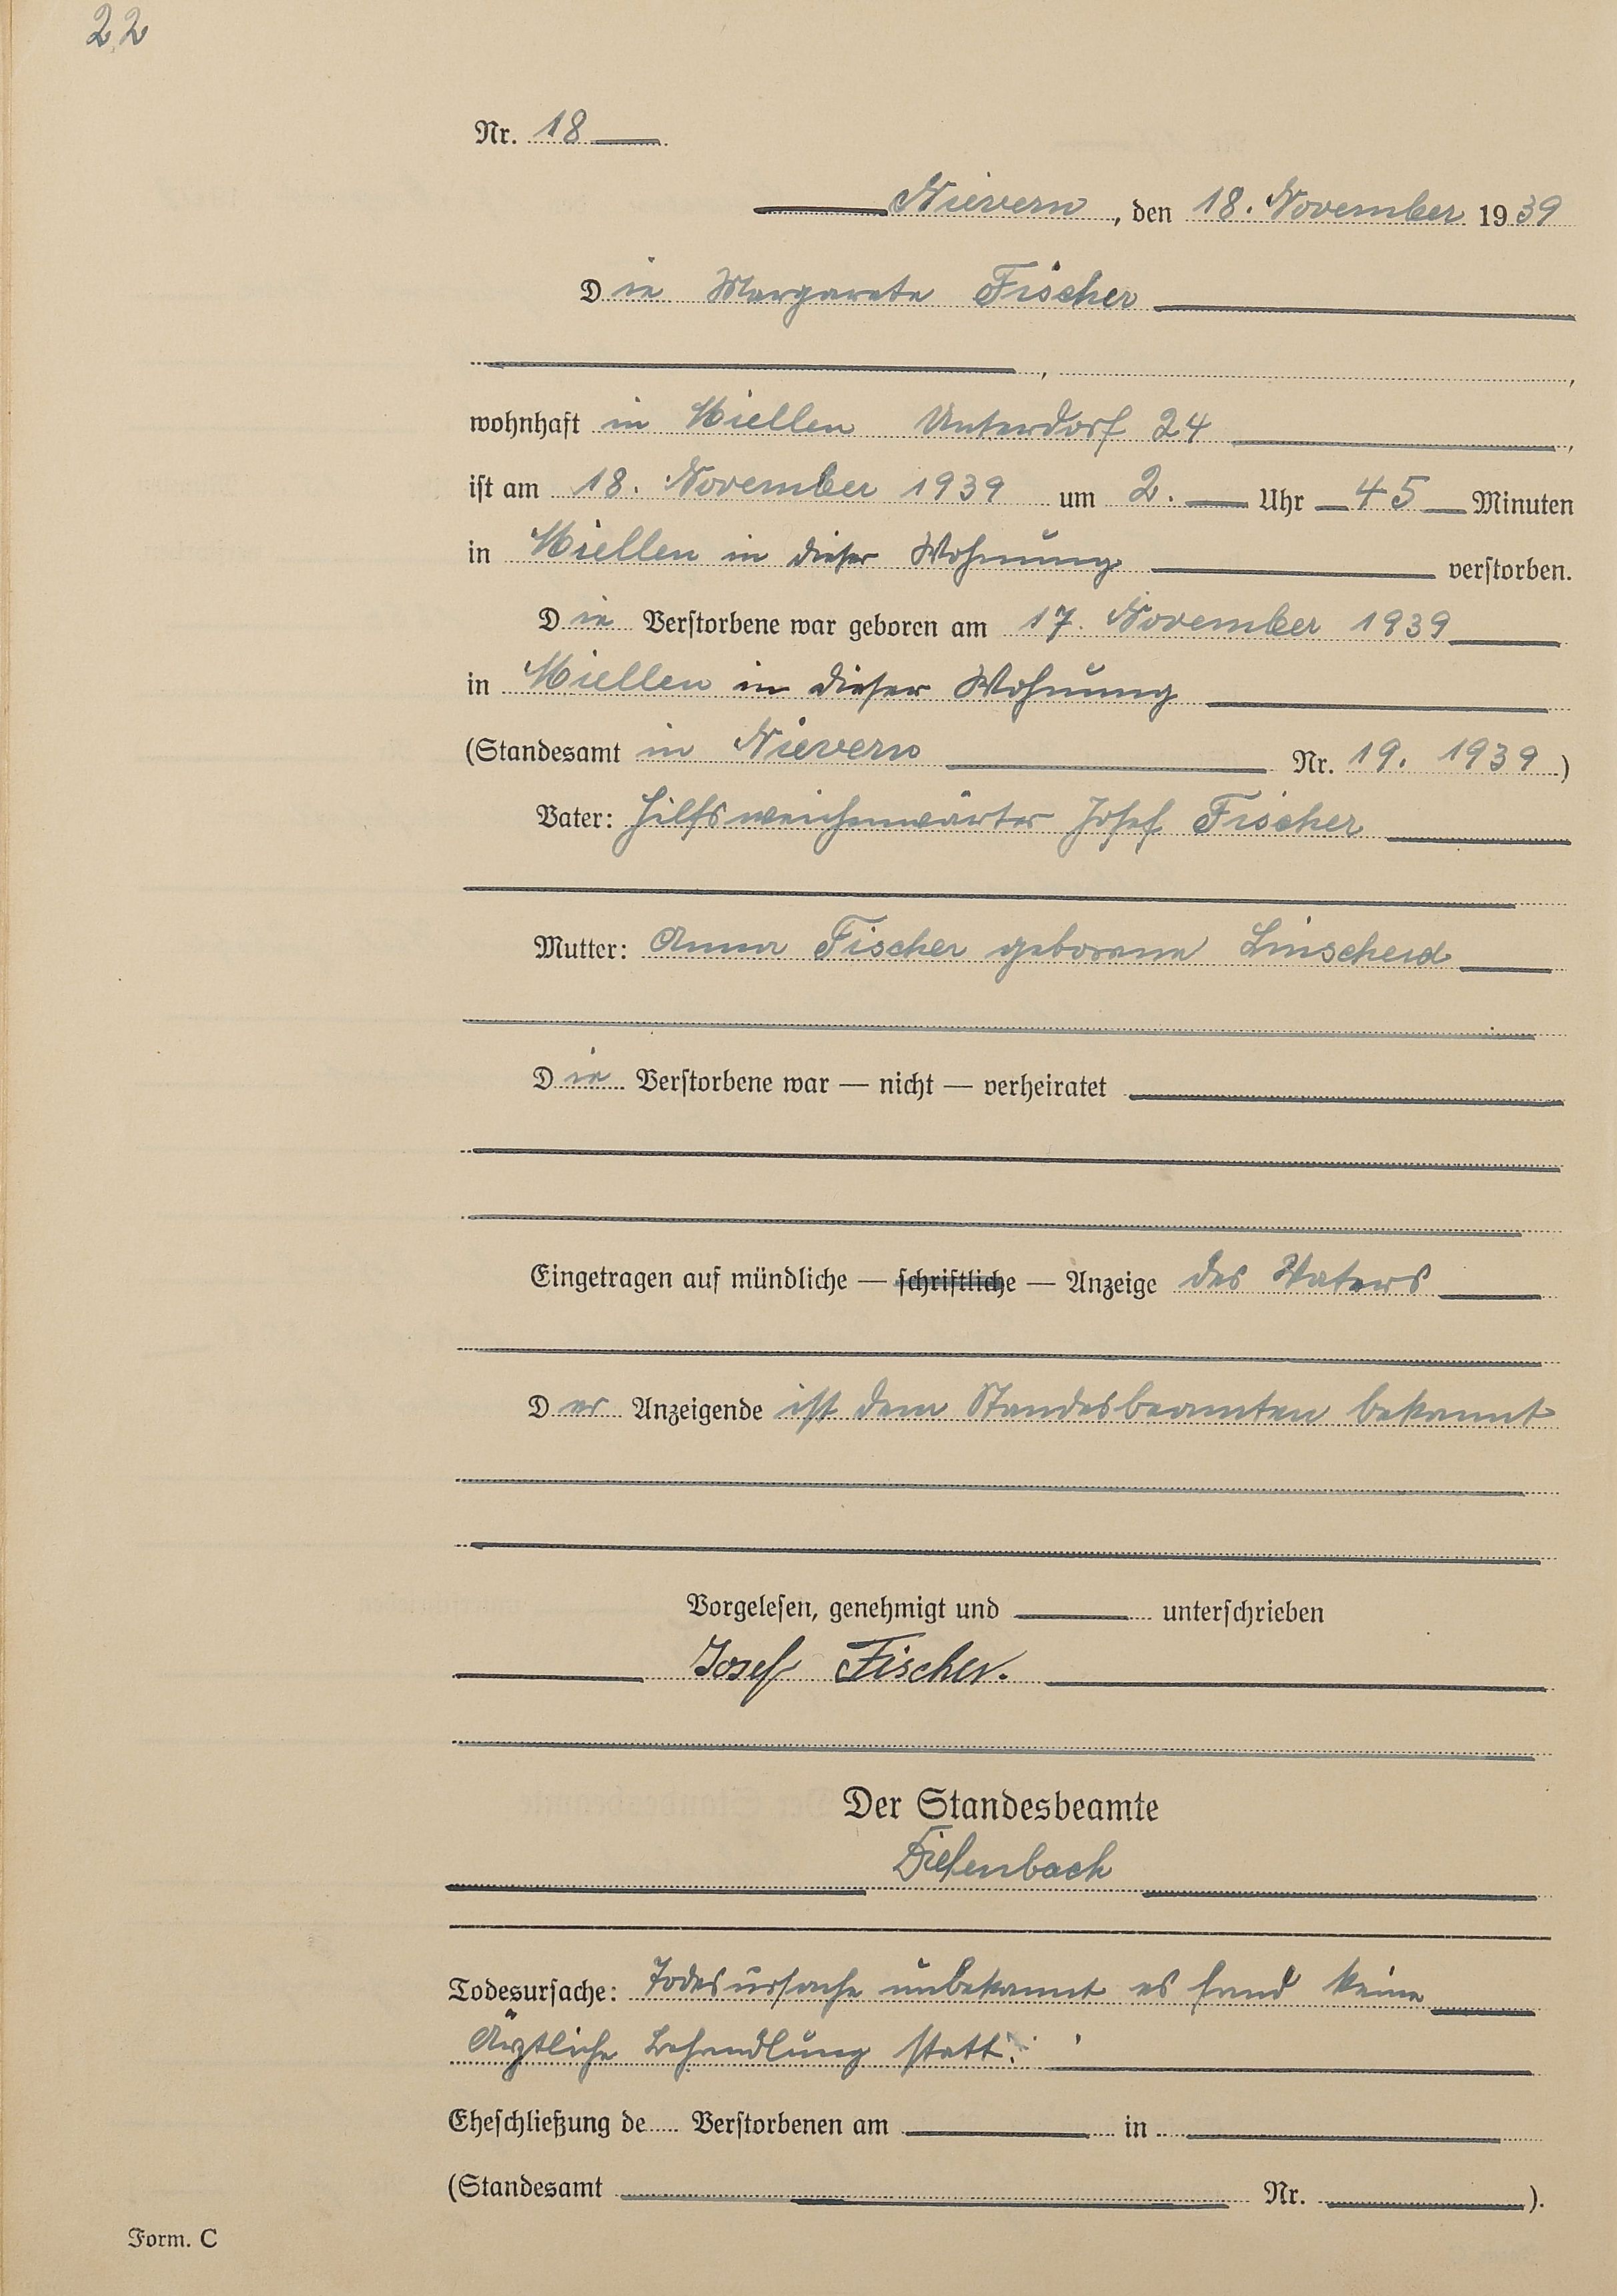 22
Nr. 18
Nievern, den 18. November 1939
Die Margarete Fischer
,
wohnhaft in Miellen Unterdorf 24,
ist am 18. November 1939 um 2. Uhr 45 Minuten
in Miellen in dieser Wohnung verstorben.
Die Verstorbene war geboren am 17. November 1939
in Miellen in dieser Wohnung
(Standesamt in Nievern Nr. 19. 1939)
Vater: Hilfsweichenwärter Josef Fischer
Mutter: Anna Fischer geborene Linscheid
Die Verstorbene war — nicht — verheiratet
Eingetragen auf mündliche — schriftliche — Anzeige des Vaters
Der Anzeigende ist dem Standesbeamten bekannt
Vorgelesen, genehmigt und unterschrieben
Josef Fischer.
Der Standesbeamte
Diefenbach
Todesursache: Todesursache unbekannt es fand keine
Ärztliche Behandlung statt.
Eheschließung de Verstorbenen am in
(Standesamt Nr. ).
Form. C